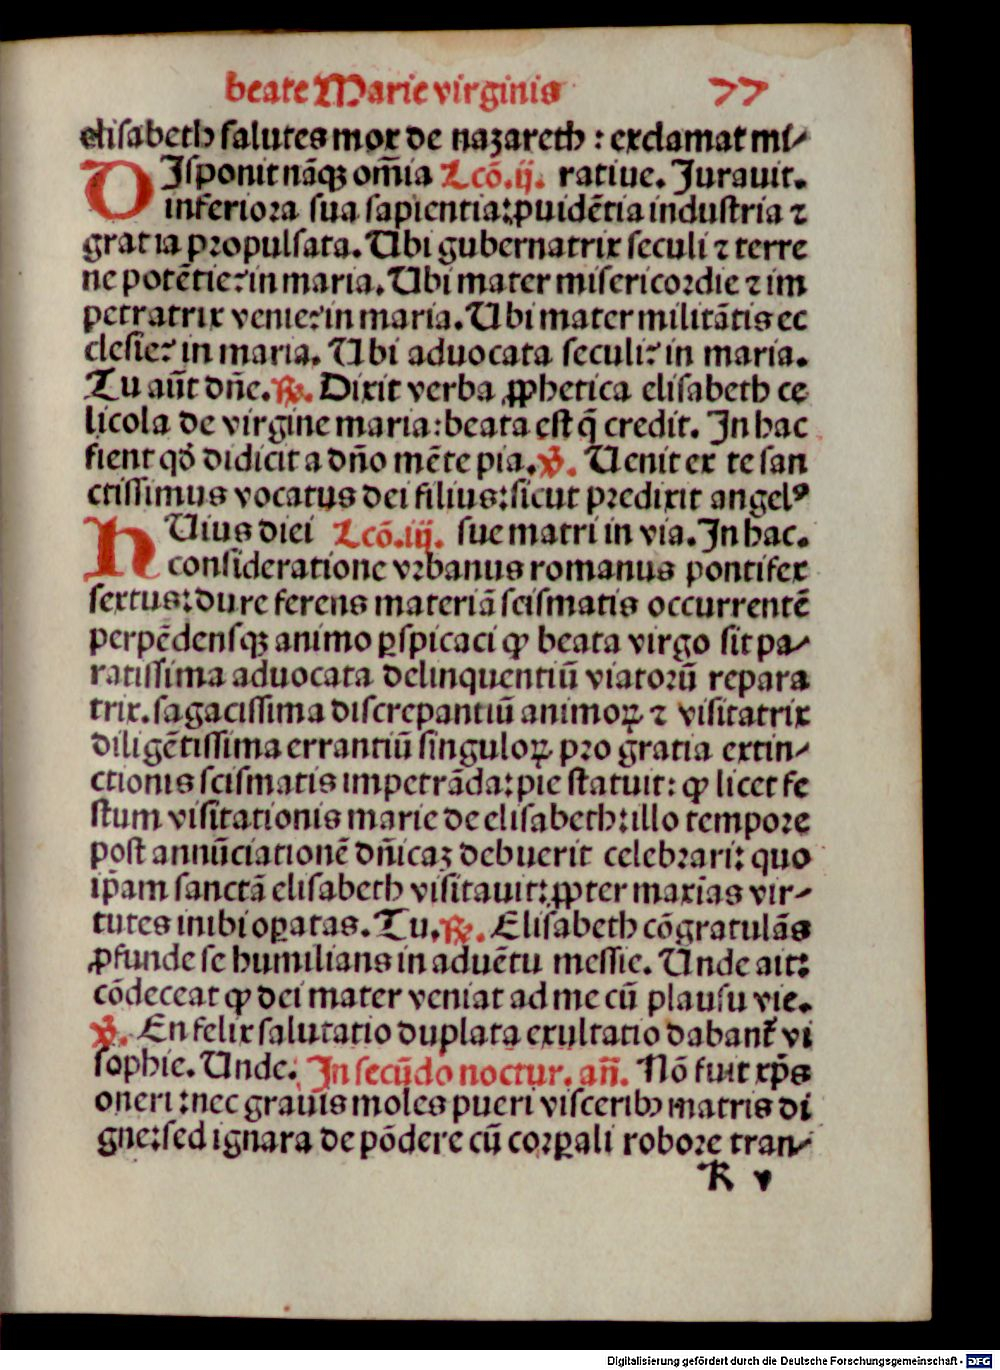 beate Marie virginis 77
elisabeth salutes mox de nazareth : exclamat mi⸗
DIsponit nāqꝫ om̄ia Lcō.ij. ratiue. Jurauit.
inferiora sua sapientia: ꝓuidētia industria ⁊
gratia propulsata. Ubi gubernatrix seculi ⁊ terre
ne potētie? in maria. Ubi mater misericordie ⁊ im
petratrix venie? in maria. Ubi mater militātis ec
clesie? in maria. Ubi aduocata seculi? in maria.
Tu aūt dn̄e. ℟. Dixit verba ꝓphetica elisabeth ce
licola de virgine maria: beata est q̄ credit. In hac
fient qd̓ didicit a dn̄o mēte pia. ℣. Uenit ex te san
ctissimus vocatus dei filius: sicut predixit angelꝰ
HUius diei Lcō.iij. sue matri in via. In hac.
consideratione vrbanus romanus pontifex
sextus: dure ferens materiā scismatis occurrentē
perpēdensqꝫ animo ꝑspicaci ꝙ beata virgo sit pa⸗
ratissima aduocata delinquentiū viatorū repara
trix. sagacissima discrepantiū animoꝝ ⁊ visitatrix
diligētissima errantiū singuloꝝ pro gratia extin⸗
ctionis scismatis impetrāda: pie statuit: ꝙ licet fe
stum visitationis marie de elisabeth: illo tempore
post annūciationē dn̄icaꝫ debuerit celebrari: quo
ip̄am sanctā elisabeth visitauit: ꝓpter maxīas vir⸗
tutes inibi oꝑatas. Tu. ℟. Elisabeth cōgratulās
ꝓfunde se humilians in aduētu messie. Unde ait:
cōdeceat ꝙ dei mater veniat ad me cū plausu vie.
℣. En felix salutatio duplata exultatio dabant᷑ vi
sophie. Unde. In secūdo noctur. an̄. Nō fuit xp̄s
oneri: nec grauis moles pueri visceribꝫ matris di
gne: sed ignara de pōdere cū corꝑali robore tran⸗
K v
Digitalisierung gefördert durch die Deutsche Forschungsgemeinschaft - DFG